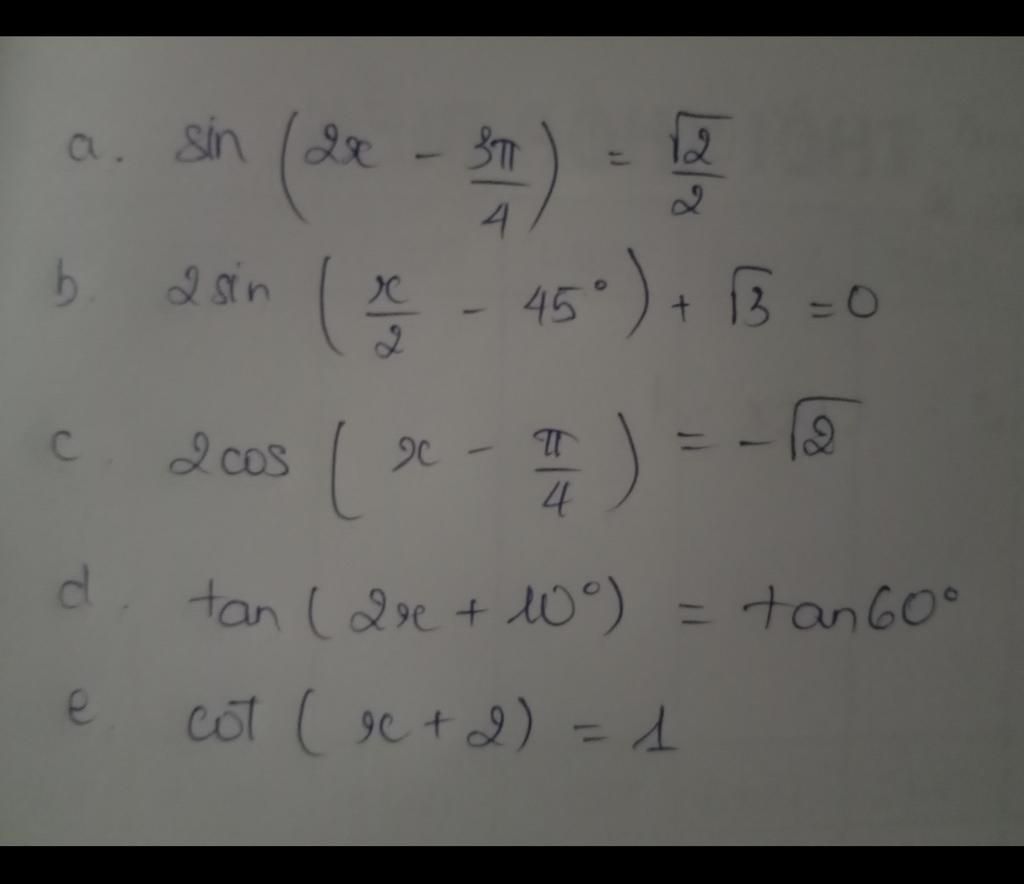 a. sin (2x - 3π/4) = √2/2
b. 2 sin (x/2 - 45°) + √3 = 0
c. 2cos (x - π/4) = -√2
d. tan (2x + 10°) = tan 60°
e. cot (x + 2) = 1